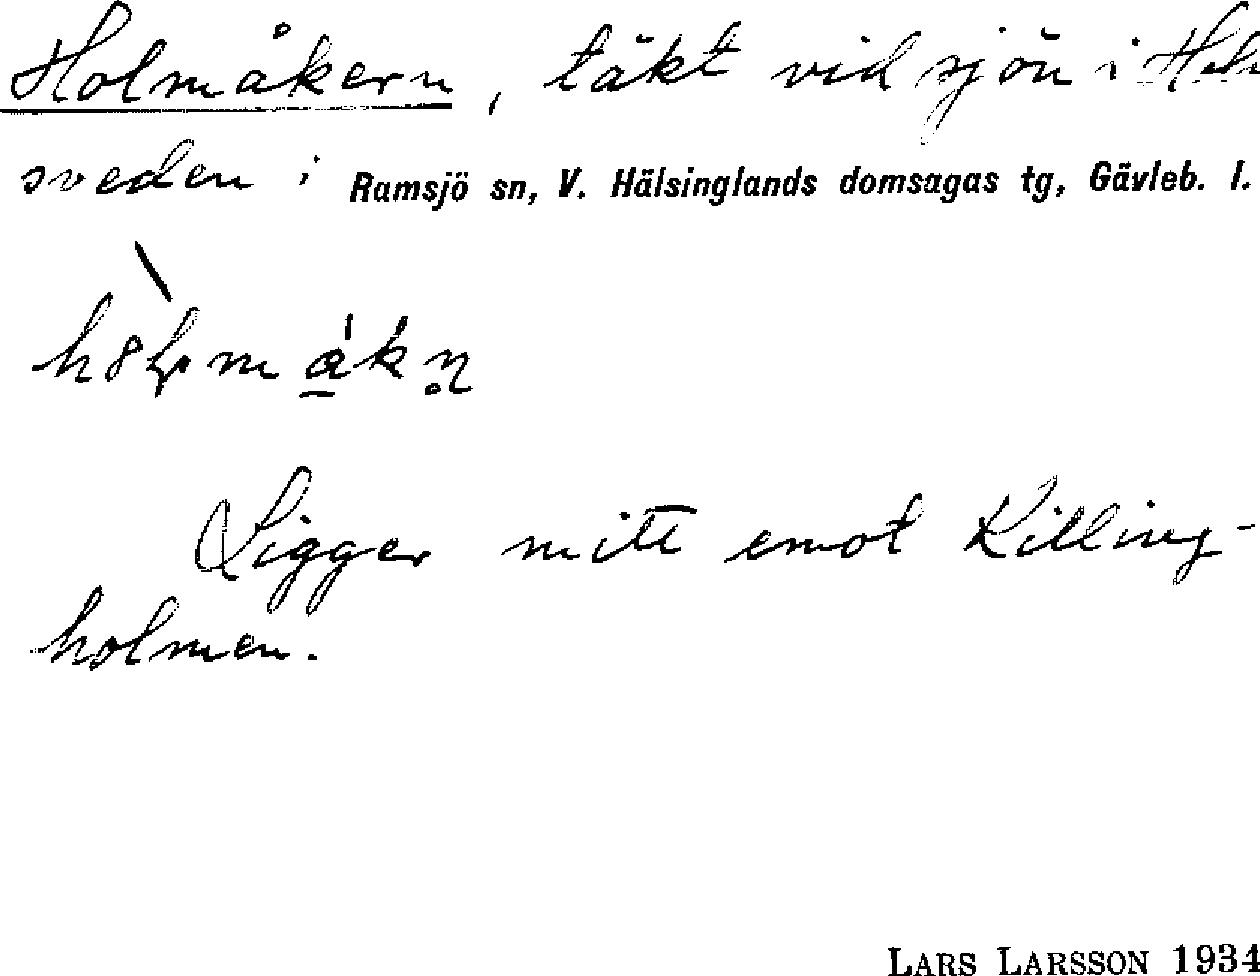 Holmåkern, täkt vid sjön i
sveden i Ramsjö sn, V. Hälsinglands domsagas tg, Gävleb. l.
Ligger mitt emot Killing-
holmen.
LARS LARSSON 1934